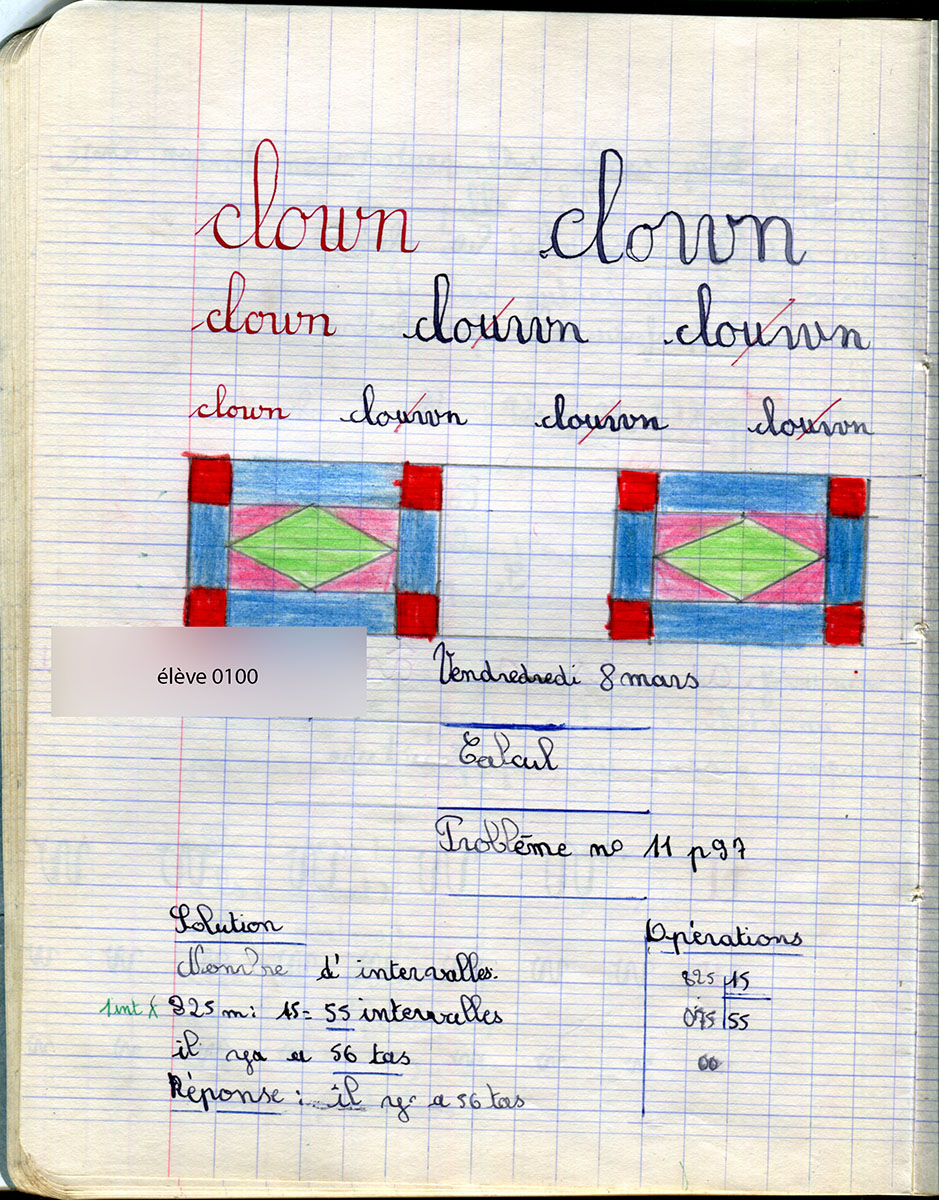 clown clown
clown clouwn clouwn
clown clouwn clouwn clouwn
élève 0100
Vendredredi 8 mars
Calcul
Problème nº 11 p 97
Solution
Opérations
Nombre d'intervalles.
825 15
1 int X 825 m: 15 = 55 intervalles
075 55
il ya a 56 tas
00
Réponse : il y a 56 tas